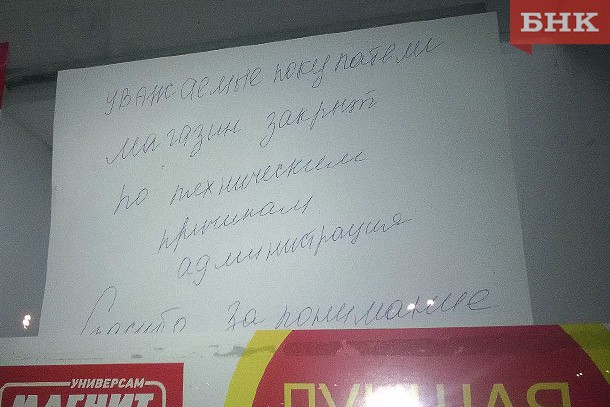 БНК
уважаемые покупатели
магазин закрыт
по техническим
причинам
администрация
Спасибо за понимание
УНИВЕРСАМ
МАГНИТ